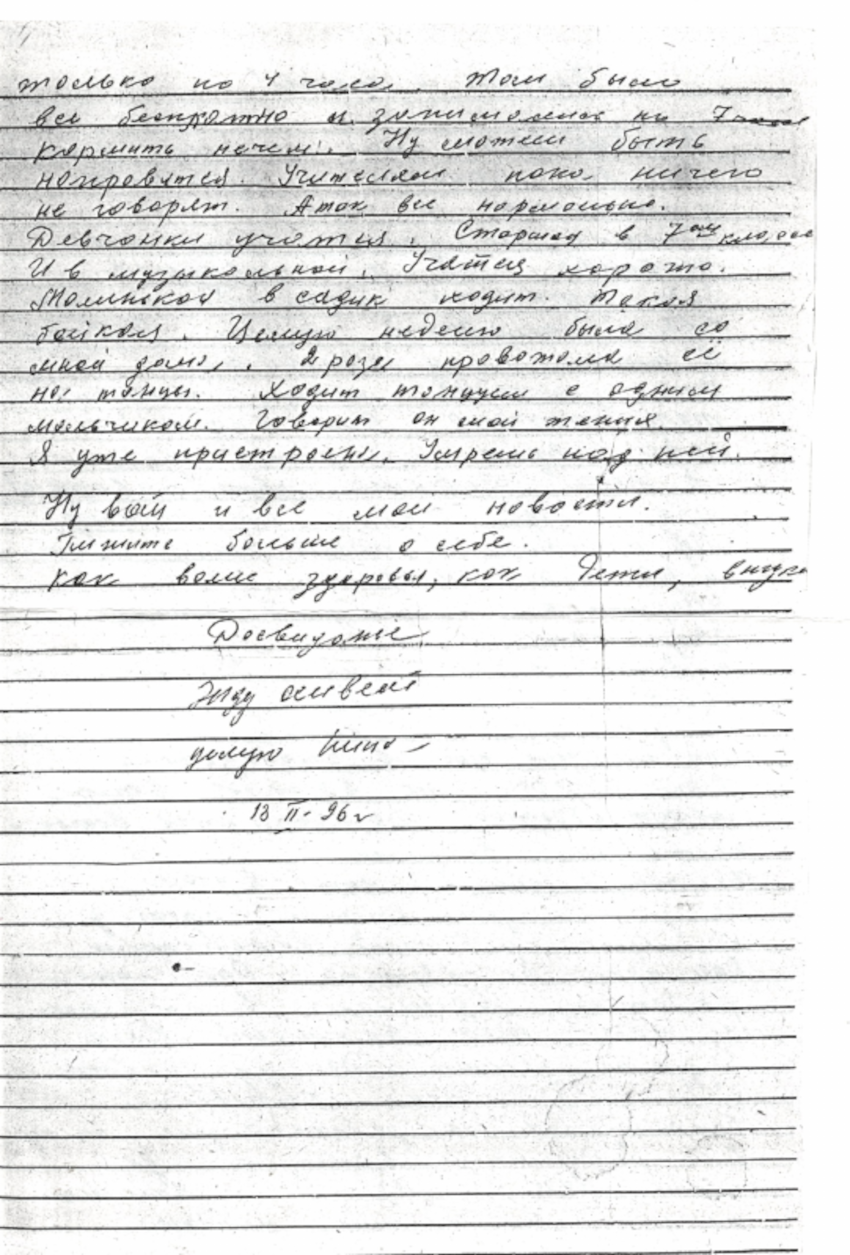 только по 4 часа. Там было
все бесплатно и занимались по 7
кормить нечем. Ну может быть
направится. Учителям пока ничего
не говорят. Атак все нормально.
Девчонки учатся. Старшая в 7ом классе
И в музыкальной. Учатся хорошо.
Маленькая в садик ходит. Такая
бойкая. Целую неделю была со
мной дома. 2 раза провожала её
на танцы. Ходит танцует с одним
мальчиком. Говорит он мой жених.
Я уже пристроена. Умрешь над ней.
Ну вот и все мои новости.
Пишите больше о себе.
Как ваше здоровья, как дети, внуки
Досвиданье
Жду ответ
целую Нина
13 II-96г